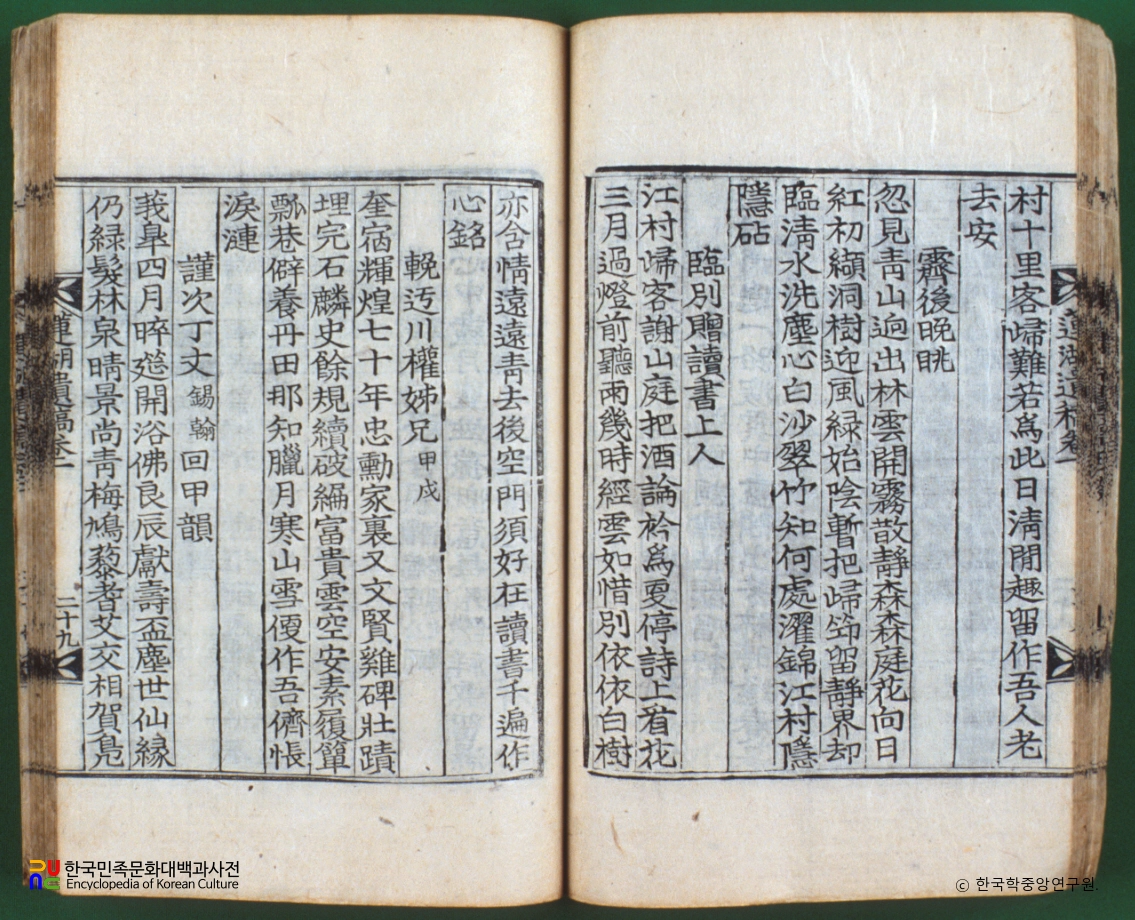 蓮湖遺稿卷一
村十里客歸難若爲此日淸閒趣留作吾人老
去安
霽後晚眺
忽見靑山逈出林雲開霧散靜森森庭花向日
紅初纈洞樹迎風緑始陰暫把歸笻留靜界却
臨淸水洗塵心白沙翠竹知何處濯錦江村隱
隱砧
臨別贈讀書上人
江村歸客謝山庭把酒論衿爲更停詩上看花
三月過燈前聽雨幾時經雲如惜別依依白樹
亦含情遠遠靑去後空門須好在讀書千遍作
心銘
輓迃川權姊兄 甲戌
奎宿輝煌七十年忠勳家裏又文賢雞碑壯蹟
埋完石麟史餘規續破編富貴雲空安素履簞
瓢巷僻養丹田那知臘月寒山雪偃作吾儕悵
淚漣
謹次丁丈 錫翰 回甲韻
莪皐四月晬筵開浴佛良辰獻壽盃塵世仙緣
仍緑髮林泉晴景尚靑梅鳩藜耆艾交相賀凫
蓮湖遺稿卷一 二十九
한국민족문화대백과사전
Encyclopedia of Korean Culture
© 한국학중앙연구원.